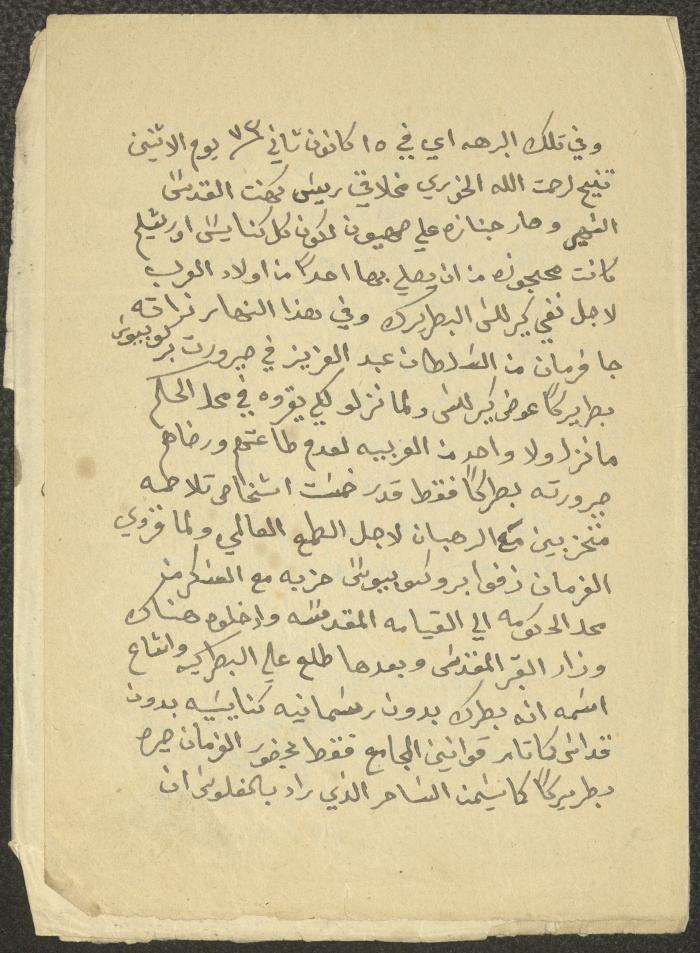 وفي تلك البرهه اي في ١٥ كانون ثاني ٧٣ يوم الاثنين
تنيح لرحمت الله الخوري ريس كهنت القدس
وصار جنازه علي صهيون لكون كل كنايس اورشليم
كانت محجوزه من ان يصلي بها احداً من اولاد العرب
لاجل نفي كيرللس البطريرك وفي هذا النهار نراته
جا فرمان من السلطان عبد العزيز في صيرورت بروكوبيوس
بطريركاً عوض كيرللس ولما نزلو لكي يقروه في محل الحكم
ما نزل ولا واحد من العربيه لعدم طاعتهم ورضاهم
صيرورته بطركاً فقط قدر خمست اشخاص تلاحمه
متحزبين مع الرهبان لاجل الطمع العالمي ولما قروي
الفرمان زفوا بروكوبيوس حزبه مع العسكر من
محل الحكومه الي القيامه المقدسه وادخلوه هناك
وزار القبر المقدس وبعدها طلع علي البطركيه واشاع
اسمه انه بطرك بدون رسمانيه كنايسيه بدون
قداس كاتامر قوانين المجامع فقط بحضور الفرمان صير
بطريركاً كما سيمن الساحر الذي راد بالفلوس ان